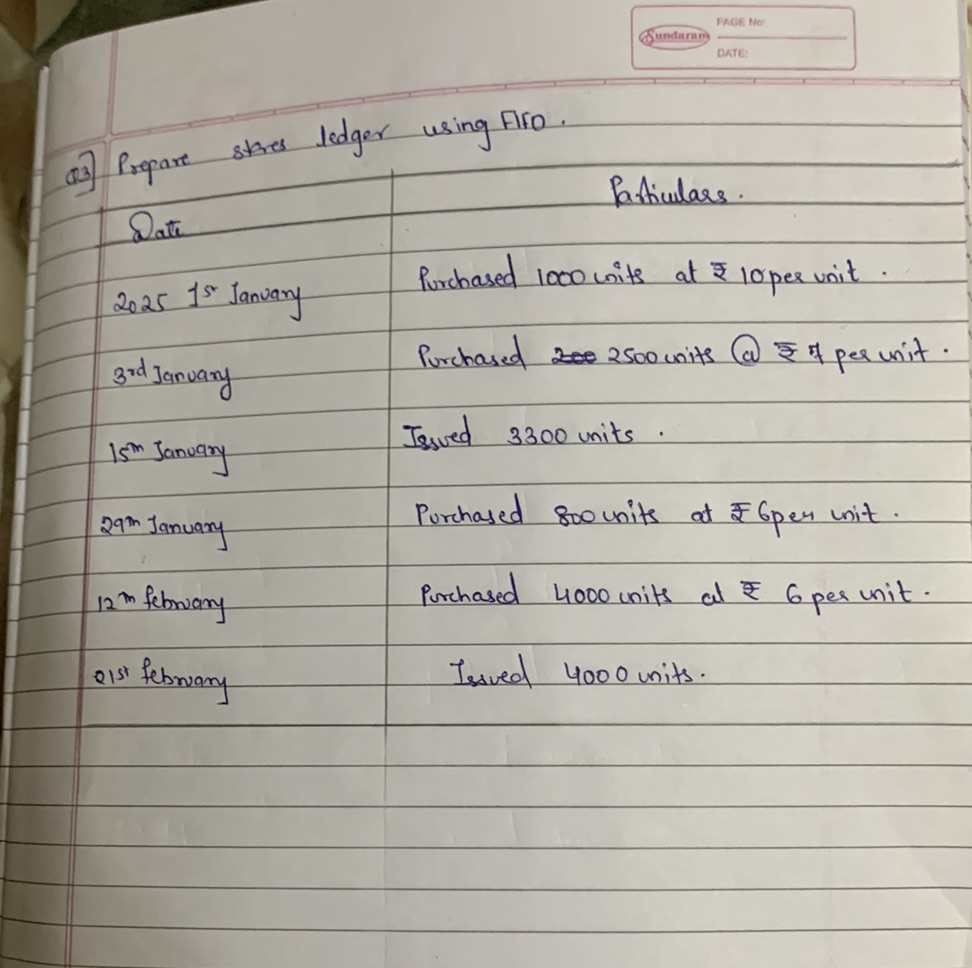 Sundaram
PAGE No:
DATE:
Q3] Prepare stores ledger using FIFO.
Date Particulars.
2025 1st January Purchased 1000 units at ₹ 10 per unit.
3rd January Purchased 200 2500 units @ ₹ 7 per unit.
15th January Issued 3300 units.
29th January Purchased 800 units at ₹ 6 per unit.
12th february Purchased 4000 units at ₹ 6 per unit.
21st february Issued 4000 units.